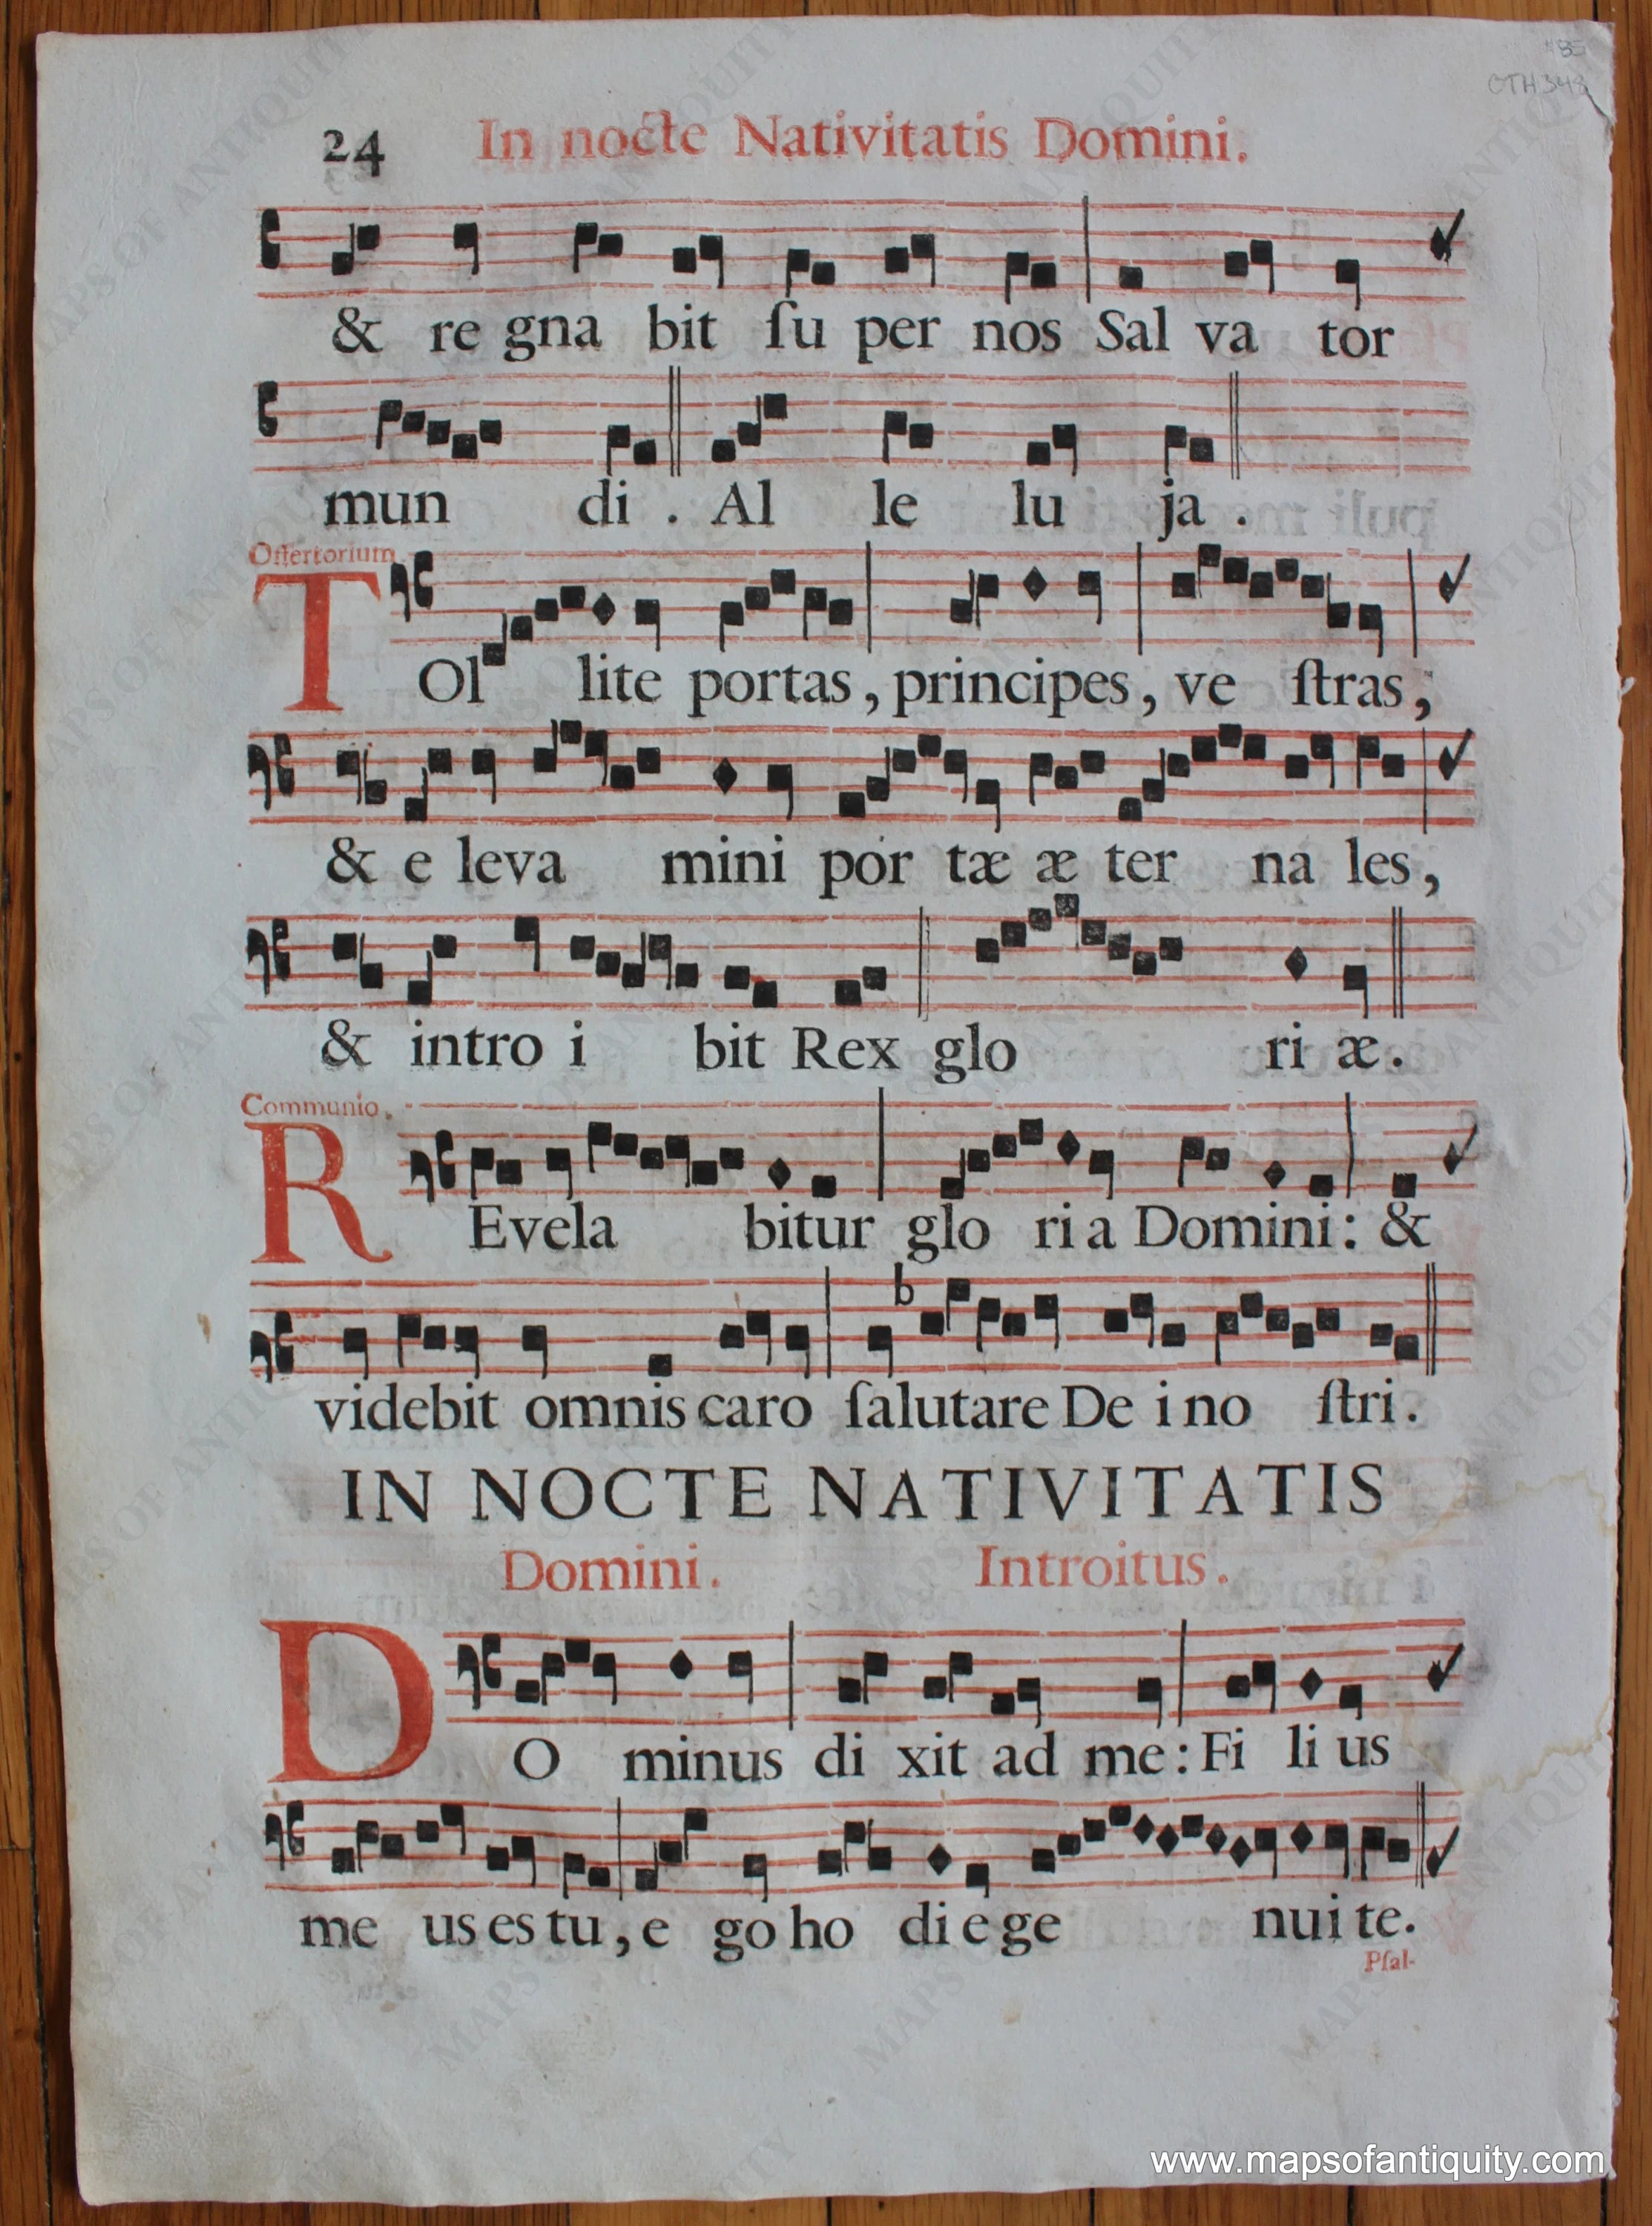 #85
OTH348
24 In nocte Nativitatis Domini.
& re gna bit ſu per nos Sal va tor
mun di . Al le lu ja .
Offertorium
TOl lite portas, principes, ve ſtras,
& e leva mini por tæ æ ter na les,
& intro i bit Rex glo ri æ.
Communio.
REvela bitur glo ri a Domini: &
b
videbit omnis caro ſalutare De i no ſtri.
IN NOCTE NATIVITATIS
Domini. Introitus.
DO minus di xit ad me: Fi li us
me us es tu, e go ho di e ge nui te.
Pſal-
www.mapsofantiquity.com